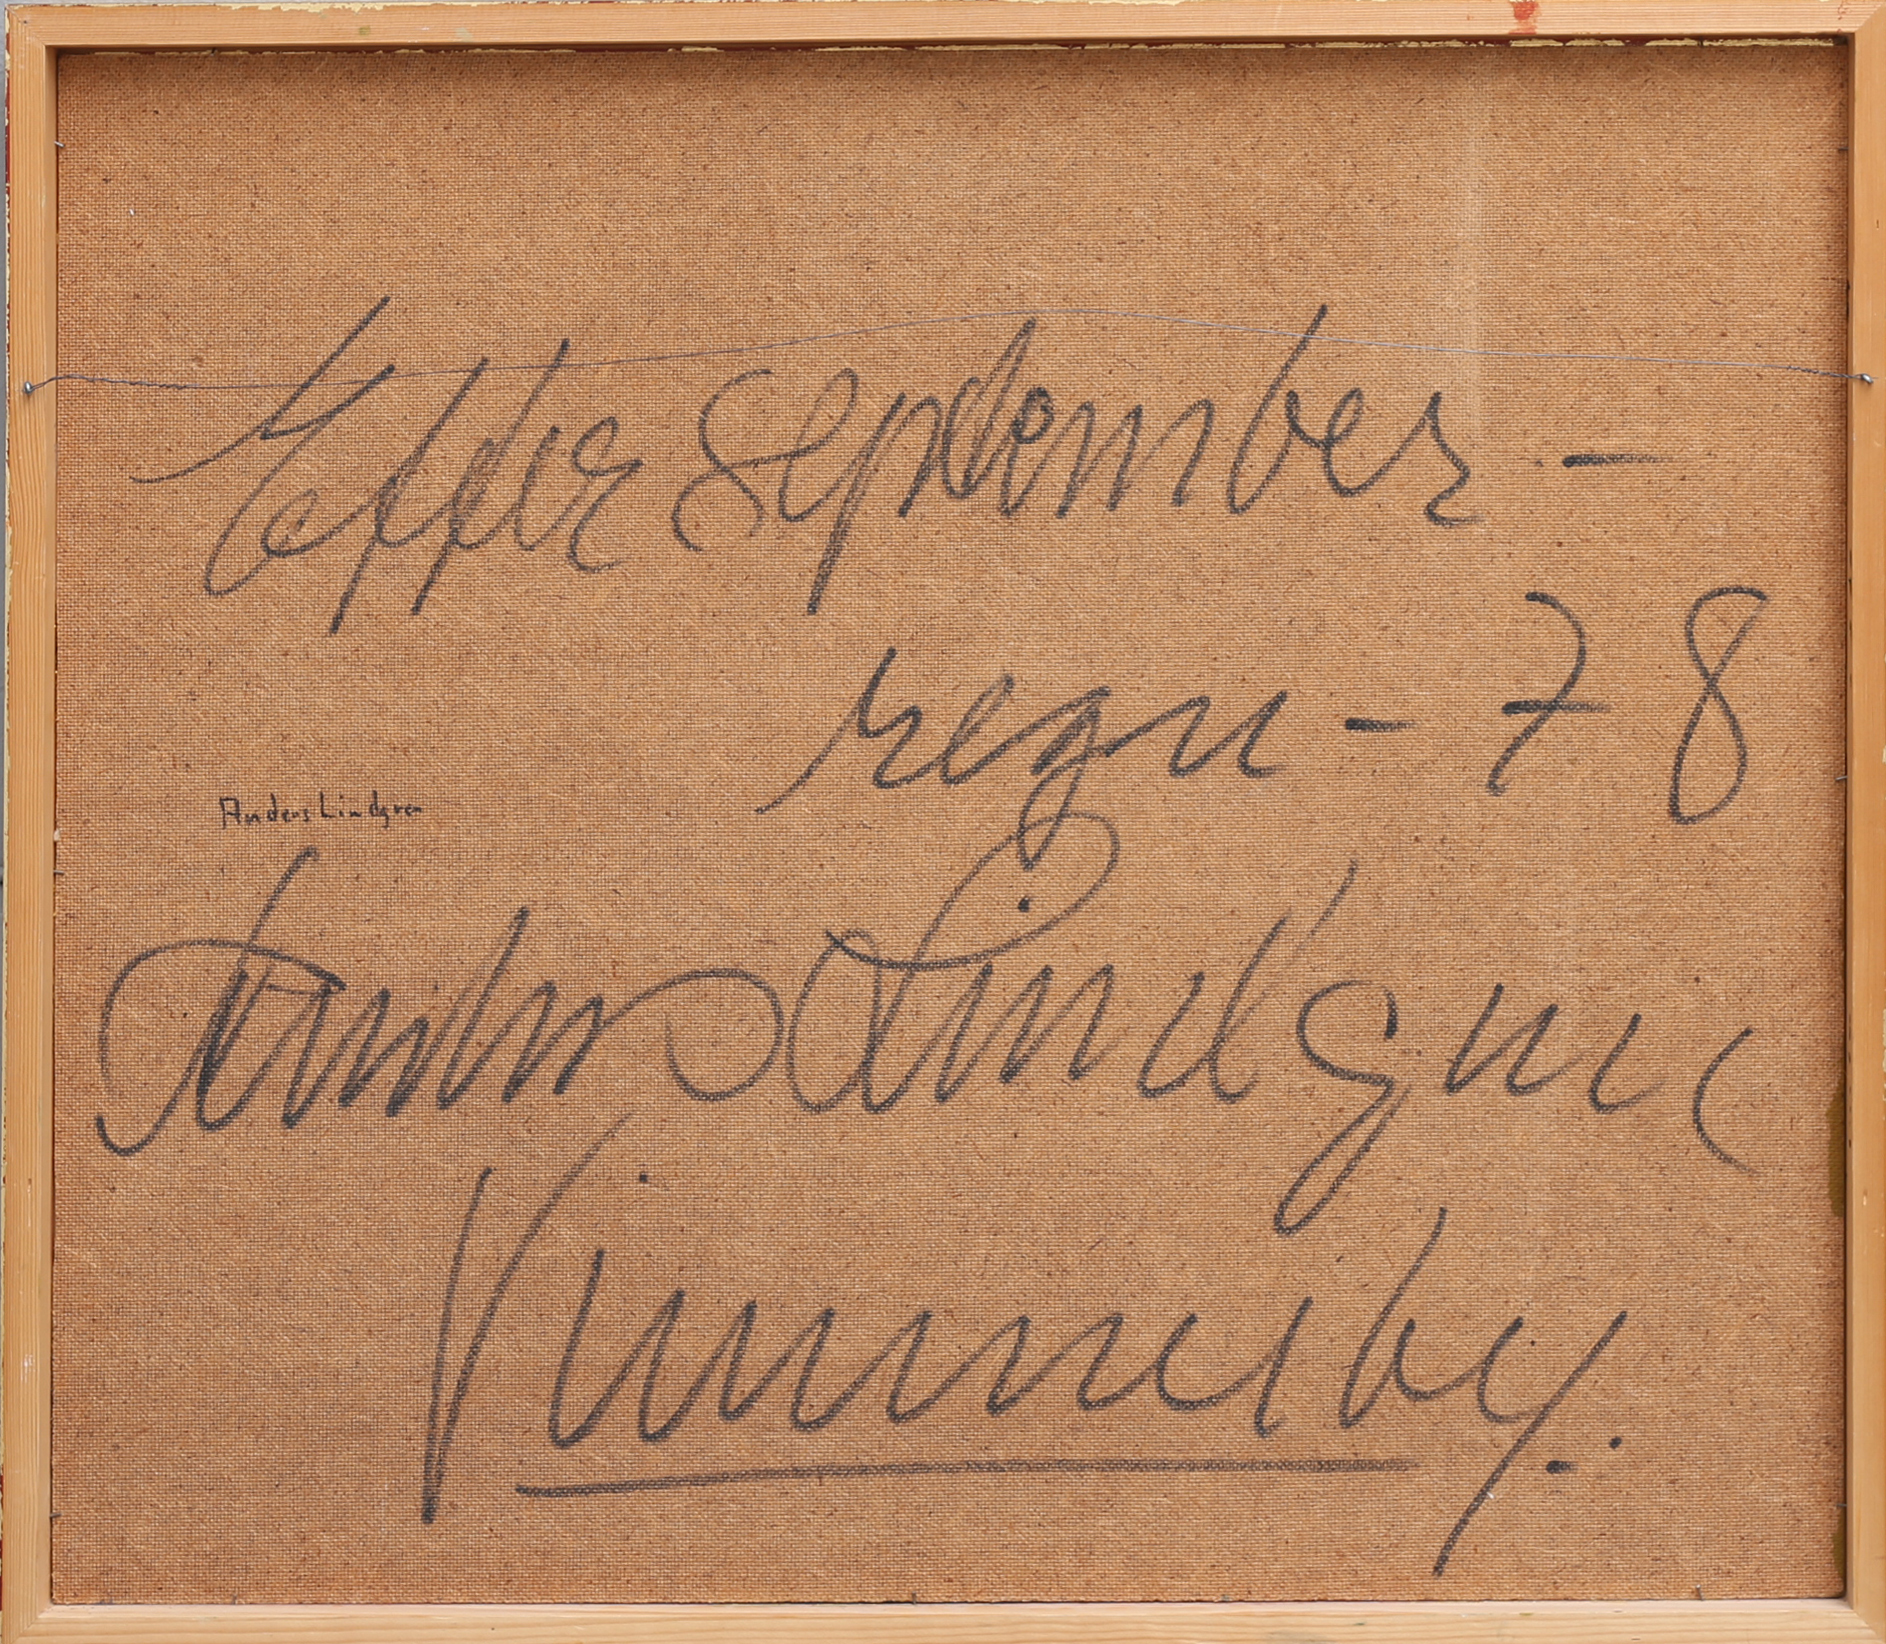 Efter September -
regn - 78
Anders Lindgren
Anders Lindgren
Vimmerby.